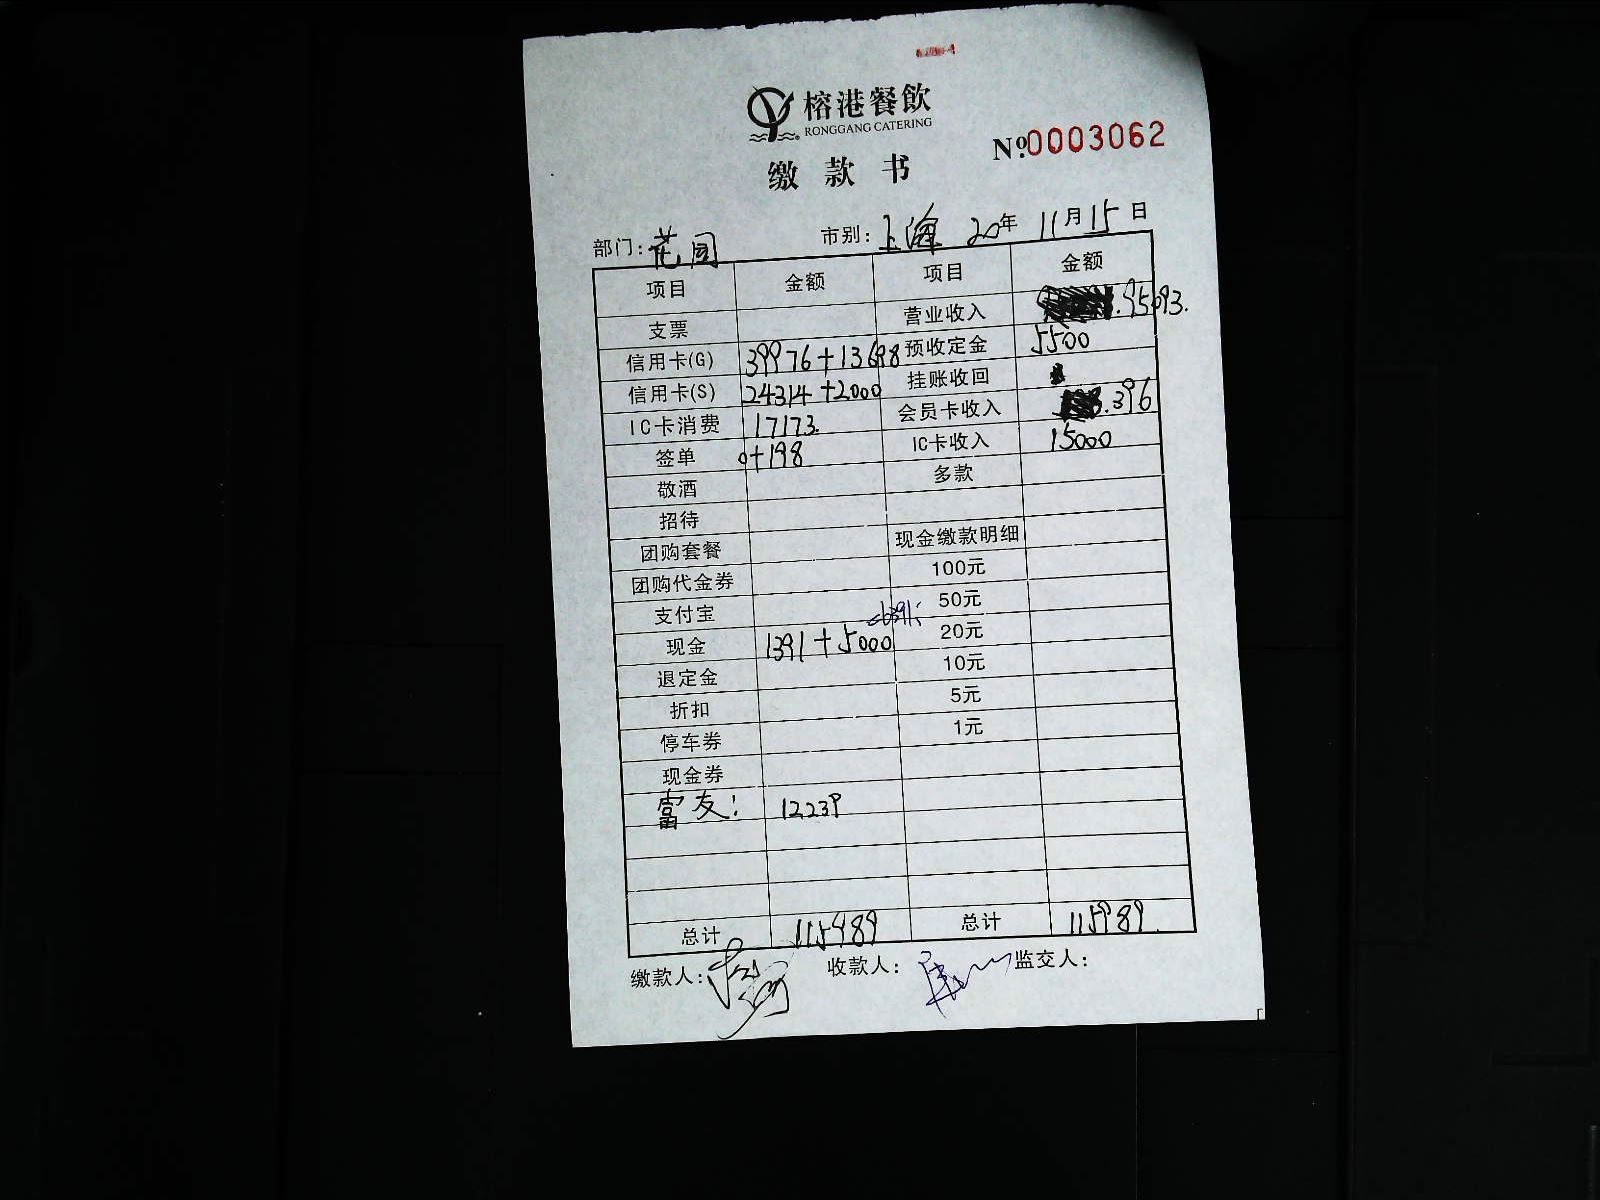 榕港餐飲
RONGGANG CATERING
No.0003062
缴款书
部门:花园 市别:上海 20年 11月15日
项目 金额 项目 金额
支票 营业收入 95093.
信用卡(G) 39976+13698 预收定金 5500
信用卡(S) 24314+2000 挂账收回
IC卡消费 17173. 会员卡收入 .396
签单 0+198 IC卡收入 15000
敬酒 多款
招待
团购套餐 现金缴款明细
团购代金券 100元
支付宝 50元
现金 1391+5000 6391 20元
退定金 10元
折扣 5元
停车券 1元
现金券
富友: 12239
总计 115989 总计 115989
缴款人: 收款人: 监交人: